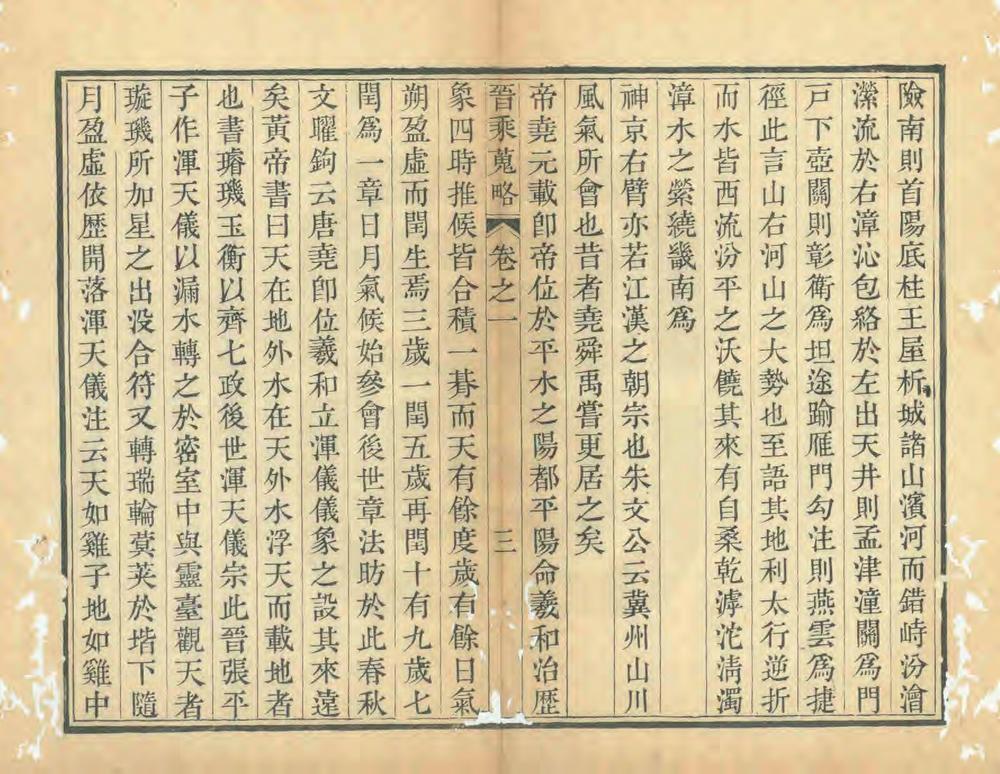 險南則首陽底柱王屋析城諸山濱河而錯峙汾澮
瀠流於右漳沁包絡於左出天井則孟津潼關爲門
戸下壺關則彰衛爲坦途踰雁門勾注則燕雲爲捷
徑此言山右河山之大勢也至語其地利太行逆折
而水皆西流汾平之沃饒其來有自桑乾滹沱淸濁
漳水之縈繞畿南爲
神京右臂亦若江漢之朝宗也朱文公云冀州山川
風氣所會也昔者堯舜禹嘗更居之矣
帝堯元載卽帝位於平水之陽都平陽命羲和治歷
晉乘蒐略 卷之一 三
象四時推候皆合積一朞而天有餘度歲有餘日氣
朔盈虛而閏生焉三歲一閏五歲再閏十有九歲七
閏爲一章日月氣候始參會後世章法昉於此春秋
文曜鉤云唐堯卽位羲和立渾儀儀象之設其來遠
矣黃帝書曰天在地外水在天外水浮天而載地者
也書璿璣玉衡以齊七政後世渾天儀宗此晉張平
子作渾天儀以漏水轉之於密室中與靈臺觀天者
璇璣所加星之出没合符又轉瑞輪蓂莢於堦下隨
月盈虛依歷開落渾天儀注云天如雞子地如雞中